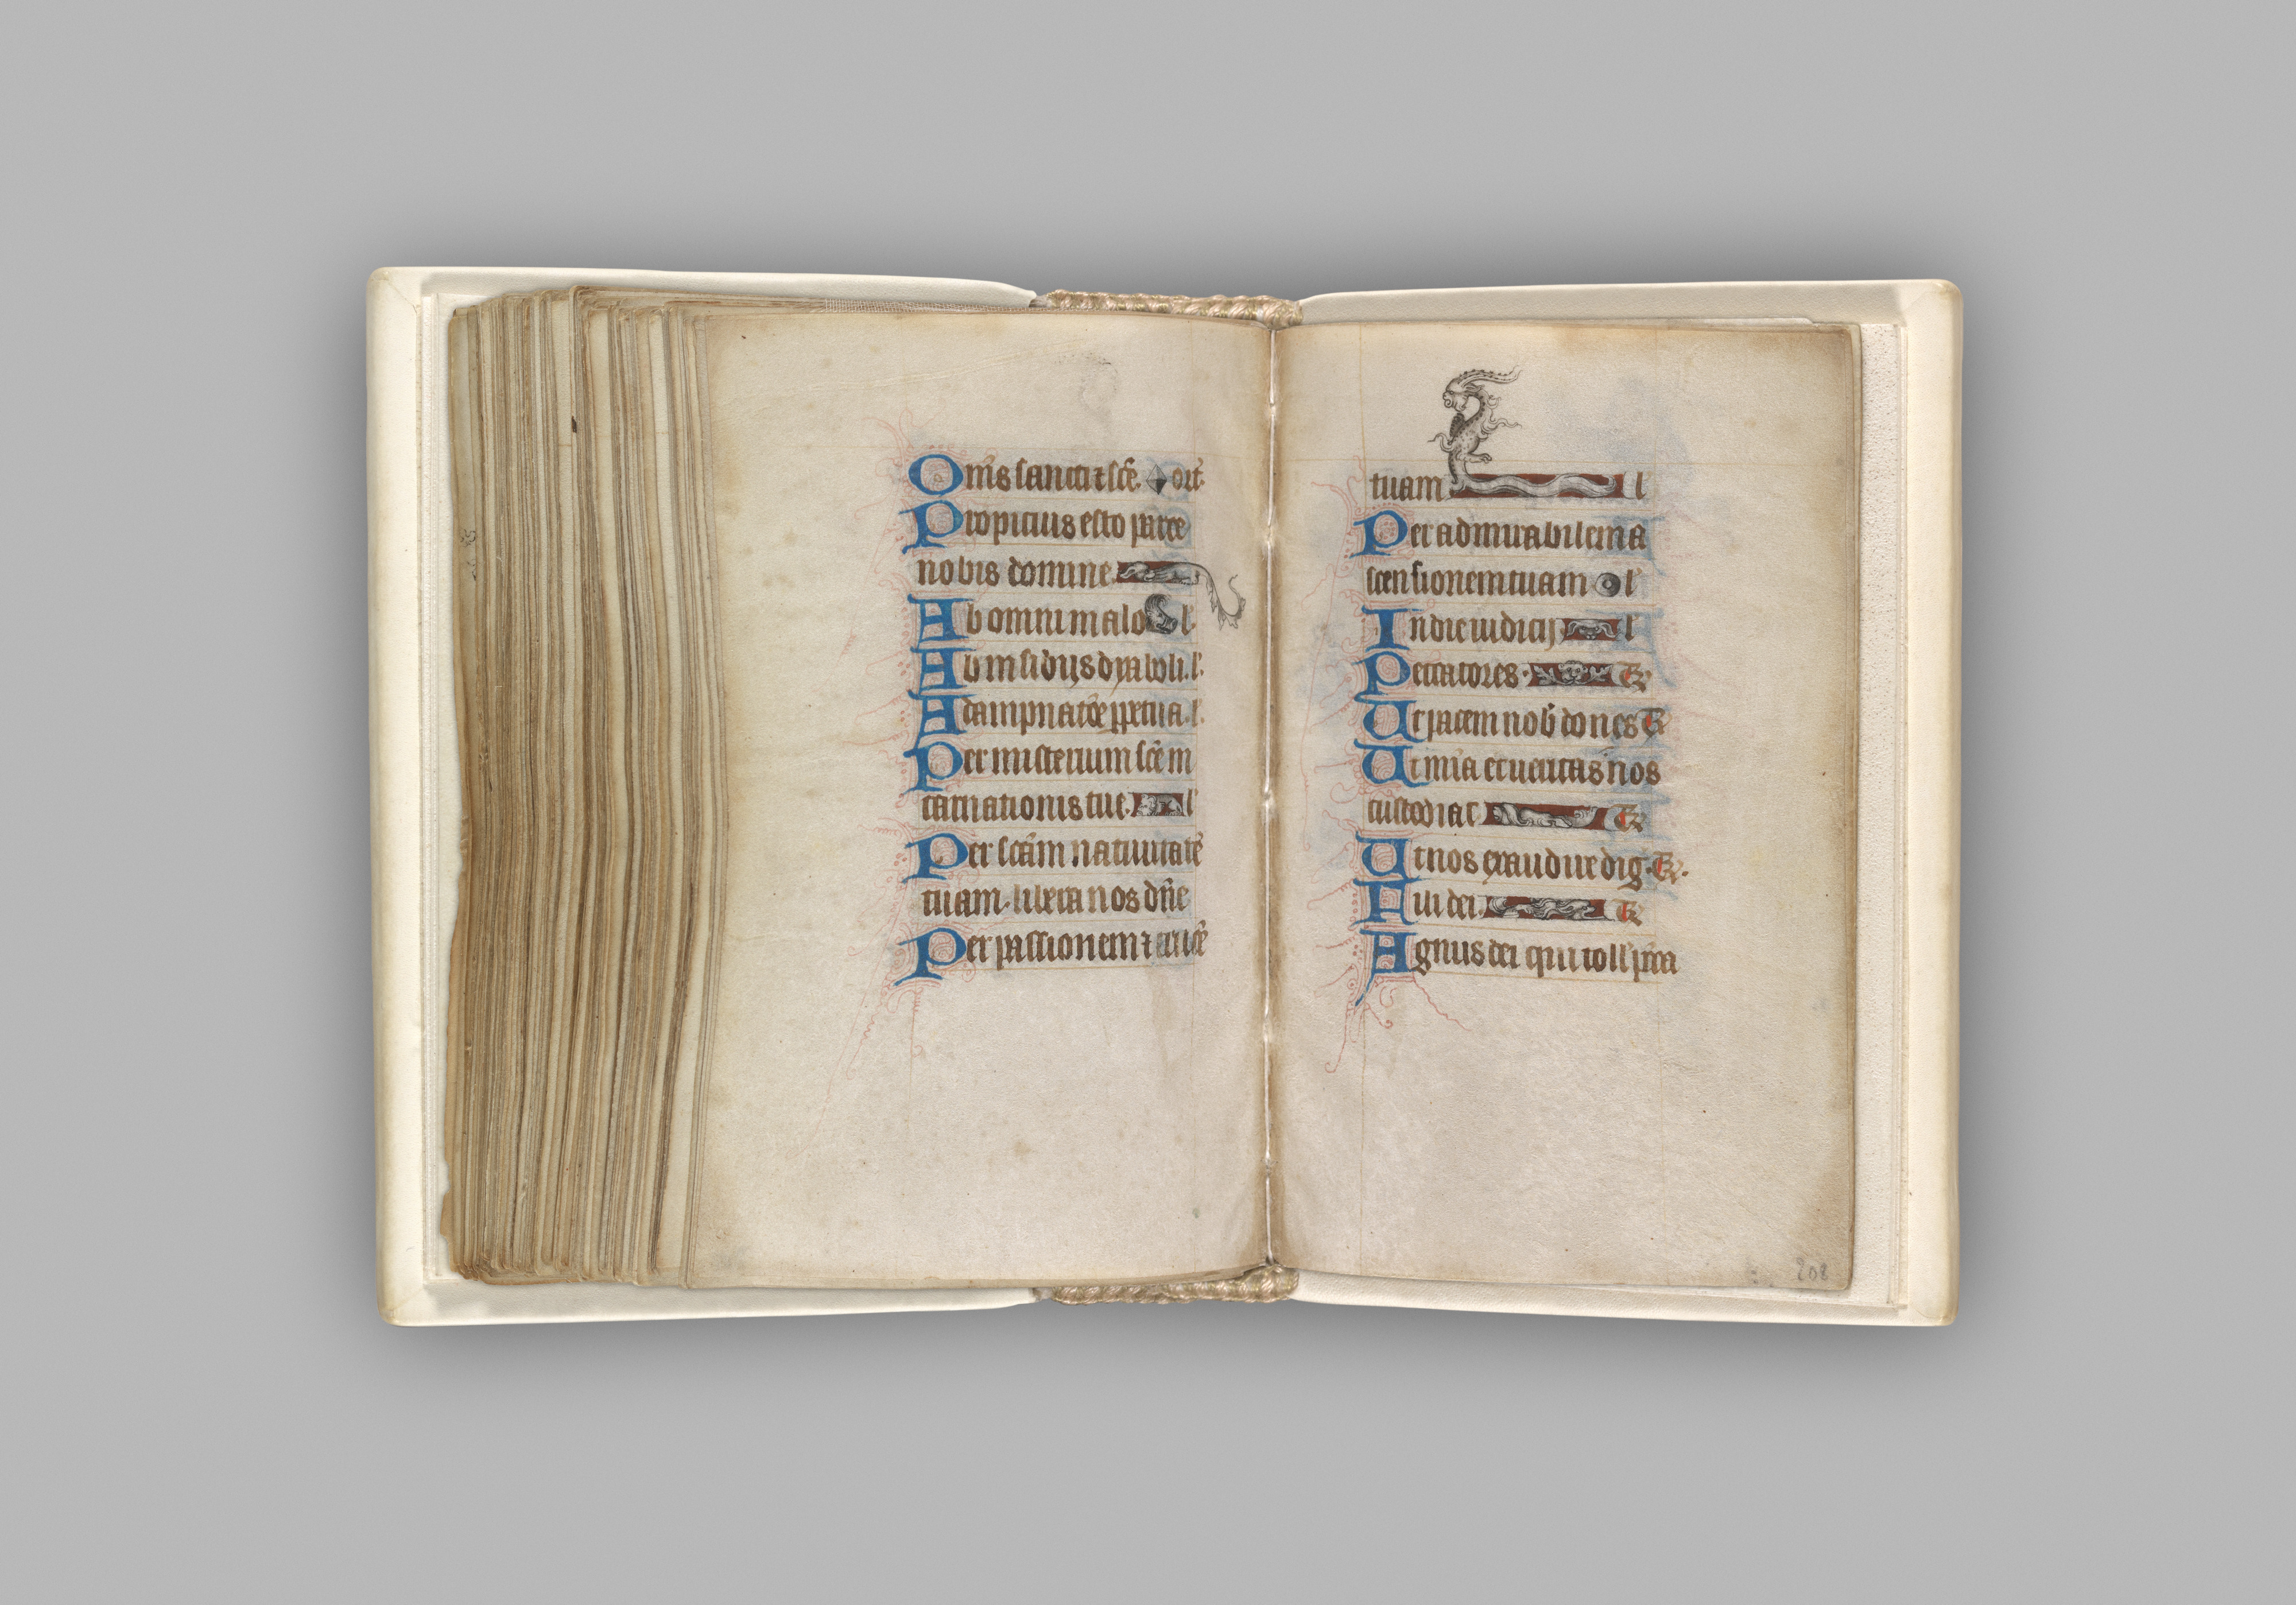 Om̄s sancti ⁊ sc̄e. ort̄.
Propicius esto parce
nobis domine
Ab omni malo l'.
Ab insidijs dyaboli. l'.
A dampnatōe ꝑpetua. l'.
Per misterium sc̄e in
carnationis tue. l'
Per sc̄am natiuitatē
tuam. libera nos dn̄e
Per passionem ⁊ crucē
tuam l'
Per admirabilem a
scensionem tuam l'
In die iudicij l'
Peccatores. Te
Ut pacem nob̄ dones Te
Ut mīa et ueritas nos
custodiat Te
Ut nos exaudire dig. Te.
Fili dei Te
Agnus dei qui toll' pc̄ca
208